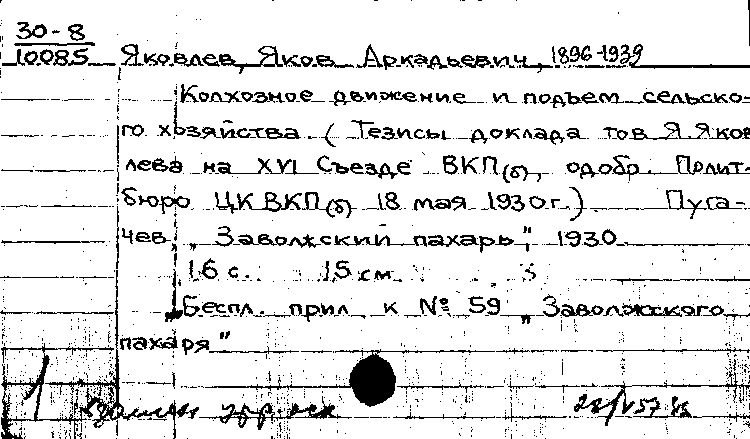 30-8
10085 Яковлев, Яков Аркадьевич, 1896-1939
Колхозное движение и подъем сельско-
го хозяйства. (Тезисы доклада тов Я. Яков
лева на XVI Съезде ВКП(б), одобр. Полит-
бюро ЦК ВКП(б) 18 мая 1930г.) Пуга-
чев, „Заволжский пахарь", 1930.
16 с. 15 см.
Беспл. прил. к № 59 „Заволжского
пахаря"
1